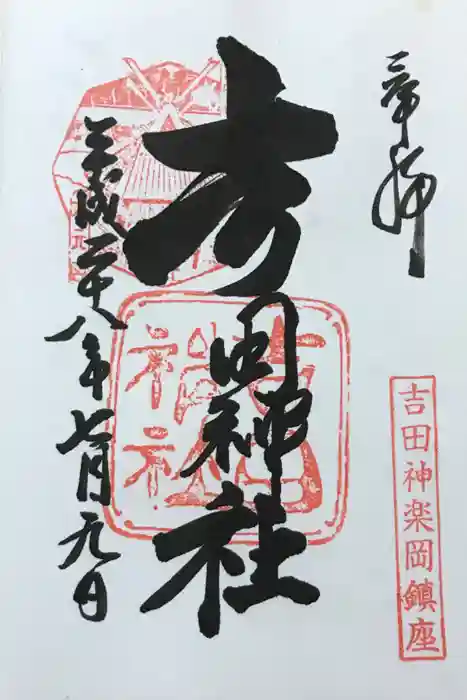 奉拝
吉田神楽岡鎮座
吉田神社
平成二十八年七月九日